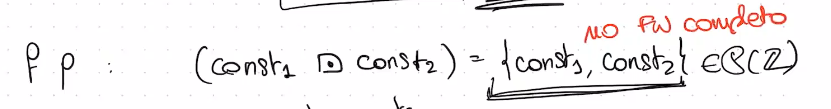 no fw completo
f p : (const₁ ⊡ const₂) = {const₁, const₂} ∈ ℘(ℤ)